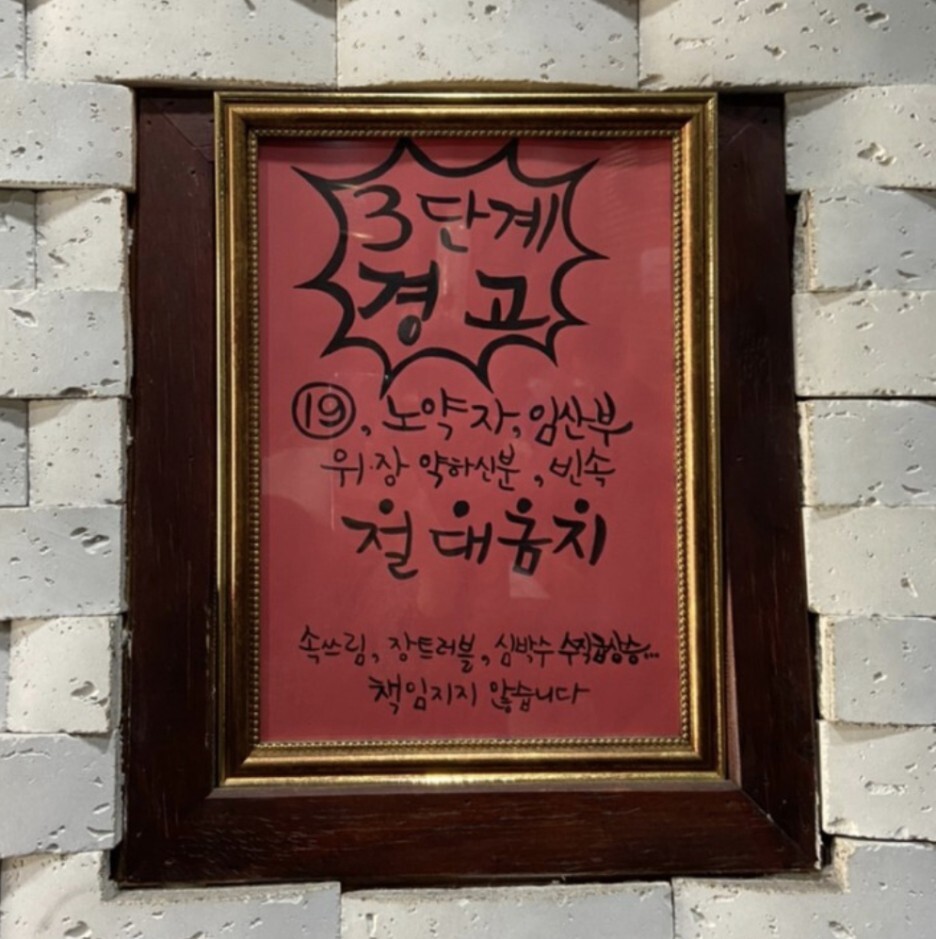 3단계
경고
⑲, 노약자, 임산부
위·장 약하신분, 빈속
절대움치
속쓰림, 장트러블, 심박수 수직급상승...
책임지지 않습니다